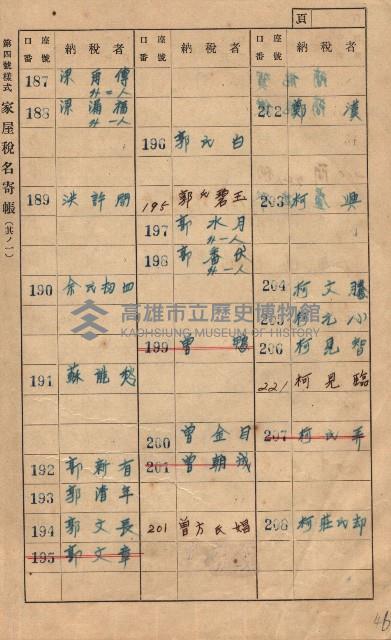 第四號樣式 家屋稅名寄帳(其ノ一)
頁
座號口番 納稅者
座號口番 納稅者
座號口番 納稅者
187 梁再傳
外二人
188 梁滿福
外一人
189 洪許間
190 余氏扨四
191 蘇龍愁
192 郭新有
193 郭清年
194 郭文長
195 郭文章
196 郭氏白
195 郭氏碧玉
197 郭水月
外一人
198 郭番伏
外一人
199 曾鴨
200 曾金目
201 曾朝成
201 曾方氏娼
202 鄭漢
203 柯興
204 柯文騰
205 柯元小
206 柯見智
221 柯見臨
207 柯氏弄
208 柯莊氏却
46
高雄市立歷史博物館
KAOHSIUNG MUSEUM OF HISTORY